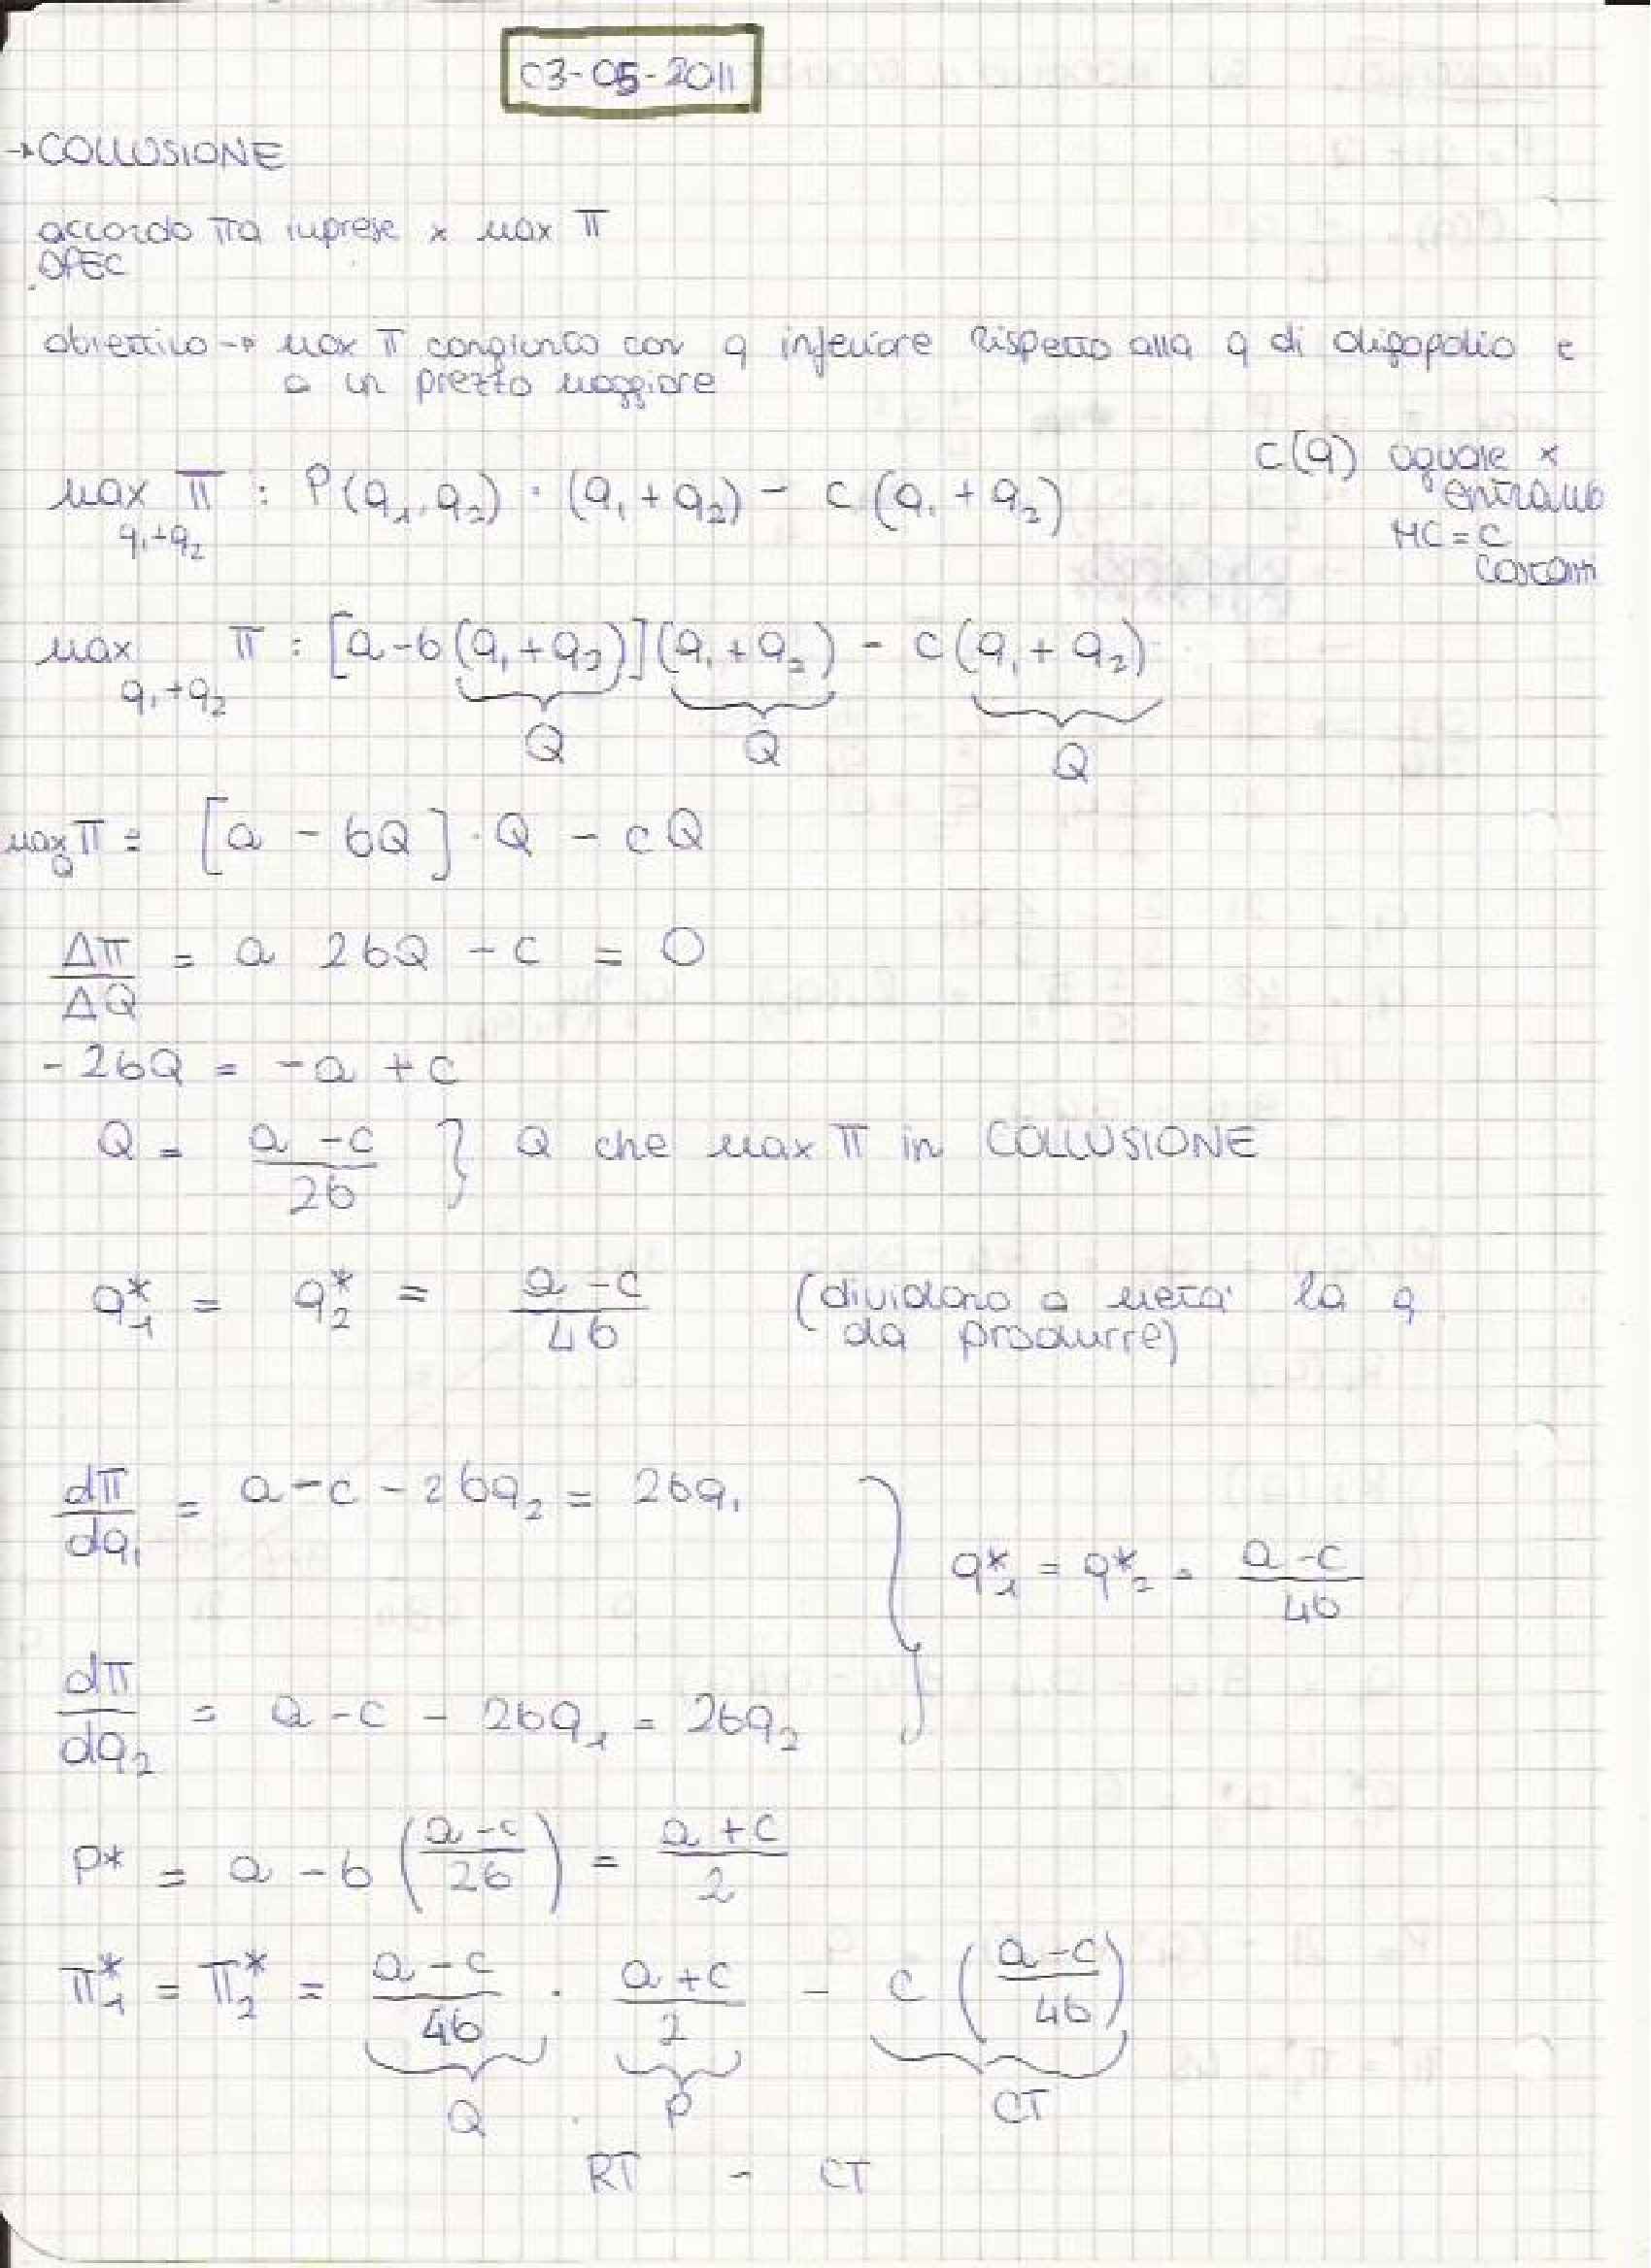 03-05-2011
→ COLLUSIONE
accordo tra imprese x max π
OPEC
obiettivo → max π congiunto con q inferiore rispetto alla q di oligopolio e
a un prezzo maggiore
max π : P(q₁,q₂) · (q₁ + q₂) - c (q₁ + q₂)
q₁+q₂
C(q) uguale x
entrambi
MC = C
costanti
max π : [a-b(q₁+q₂)](q₁+q₂) - c(q₁+q₂)
q₁+q₂
Q Q Q
max π = [a - bQ] · Q - cQ
Q
Δπ/ΔQ = a 2bQ - c = 0
-2bQ = -a + c
Q = (a - c)/2b } Q che max π in COLLUSIONE
q₁* = q₂* = (a - c)/4b (dividono a metà la q
da produrre)
dπ/dq₁ = a - c - 2bq₂ = 2bq₁
q₁* = q₂* = (a - c)/4b
dπ/dq₂ = a - c - 2bq₁ = 2bq₂
P* = a - b ((a - c)/2b) = (a + c)/2
π₁* = π₂* = (a - c)/4b · (a + c)/2 - c ((a - c)/4b)
Q P CT
RT - CT